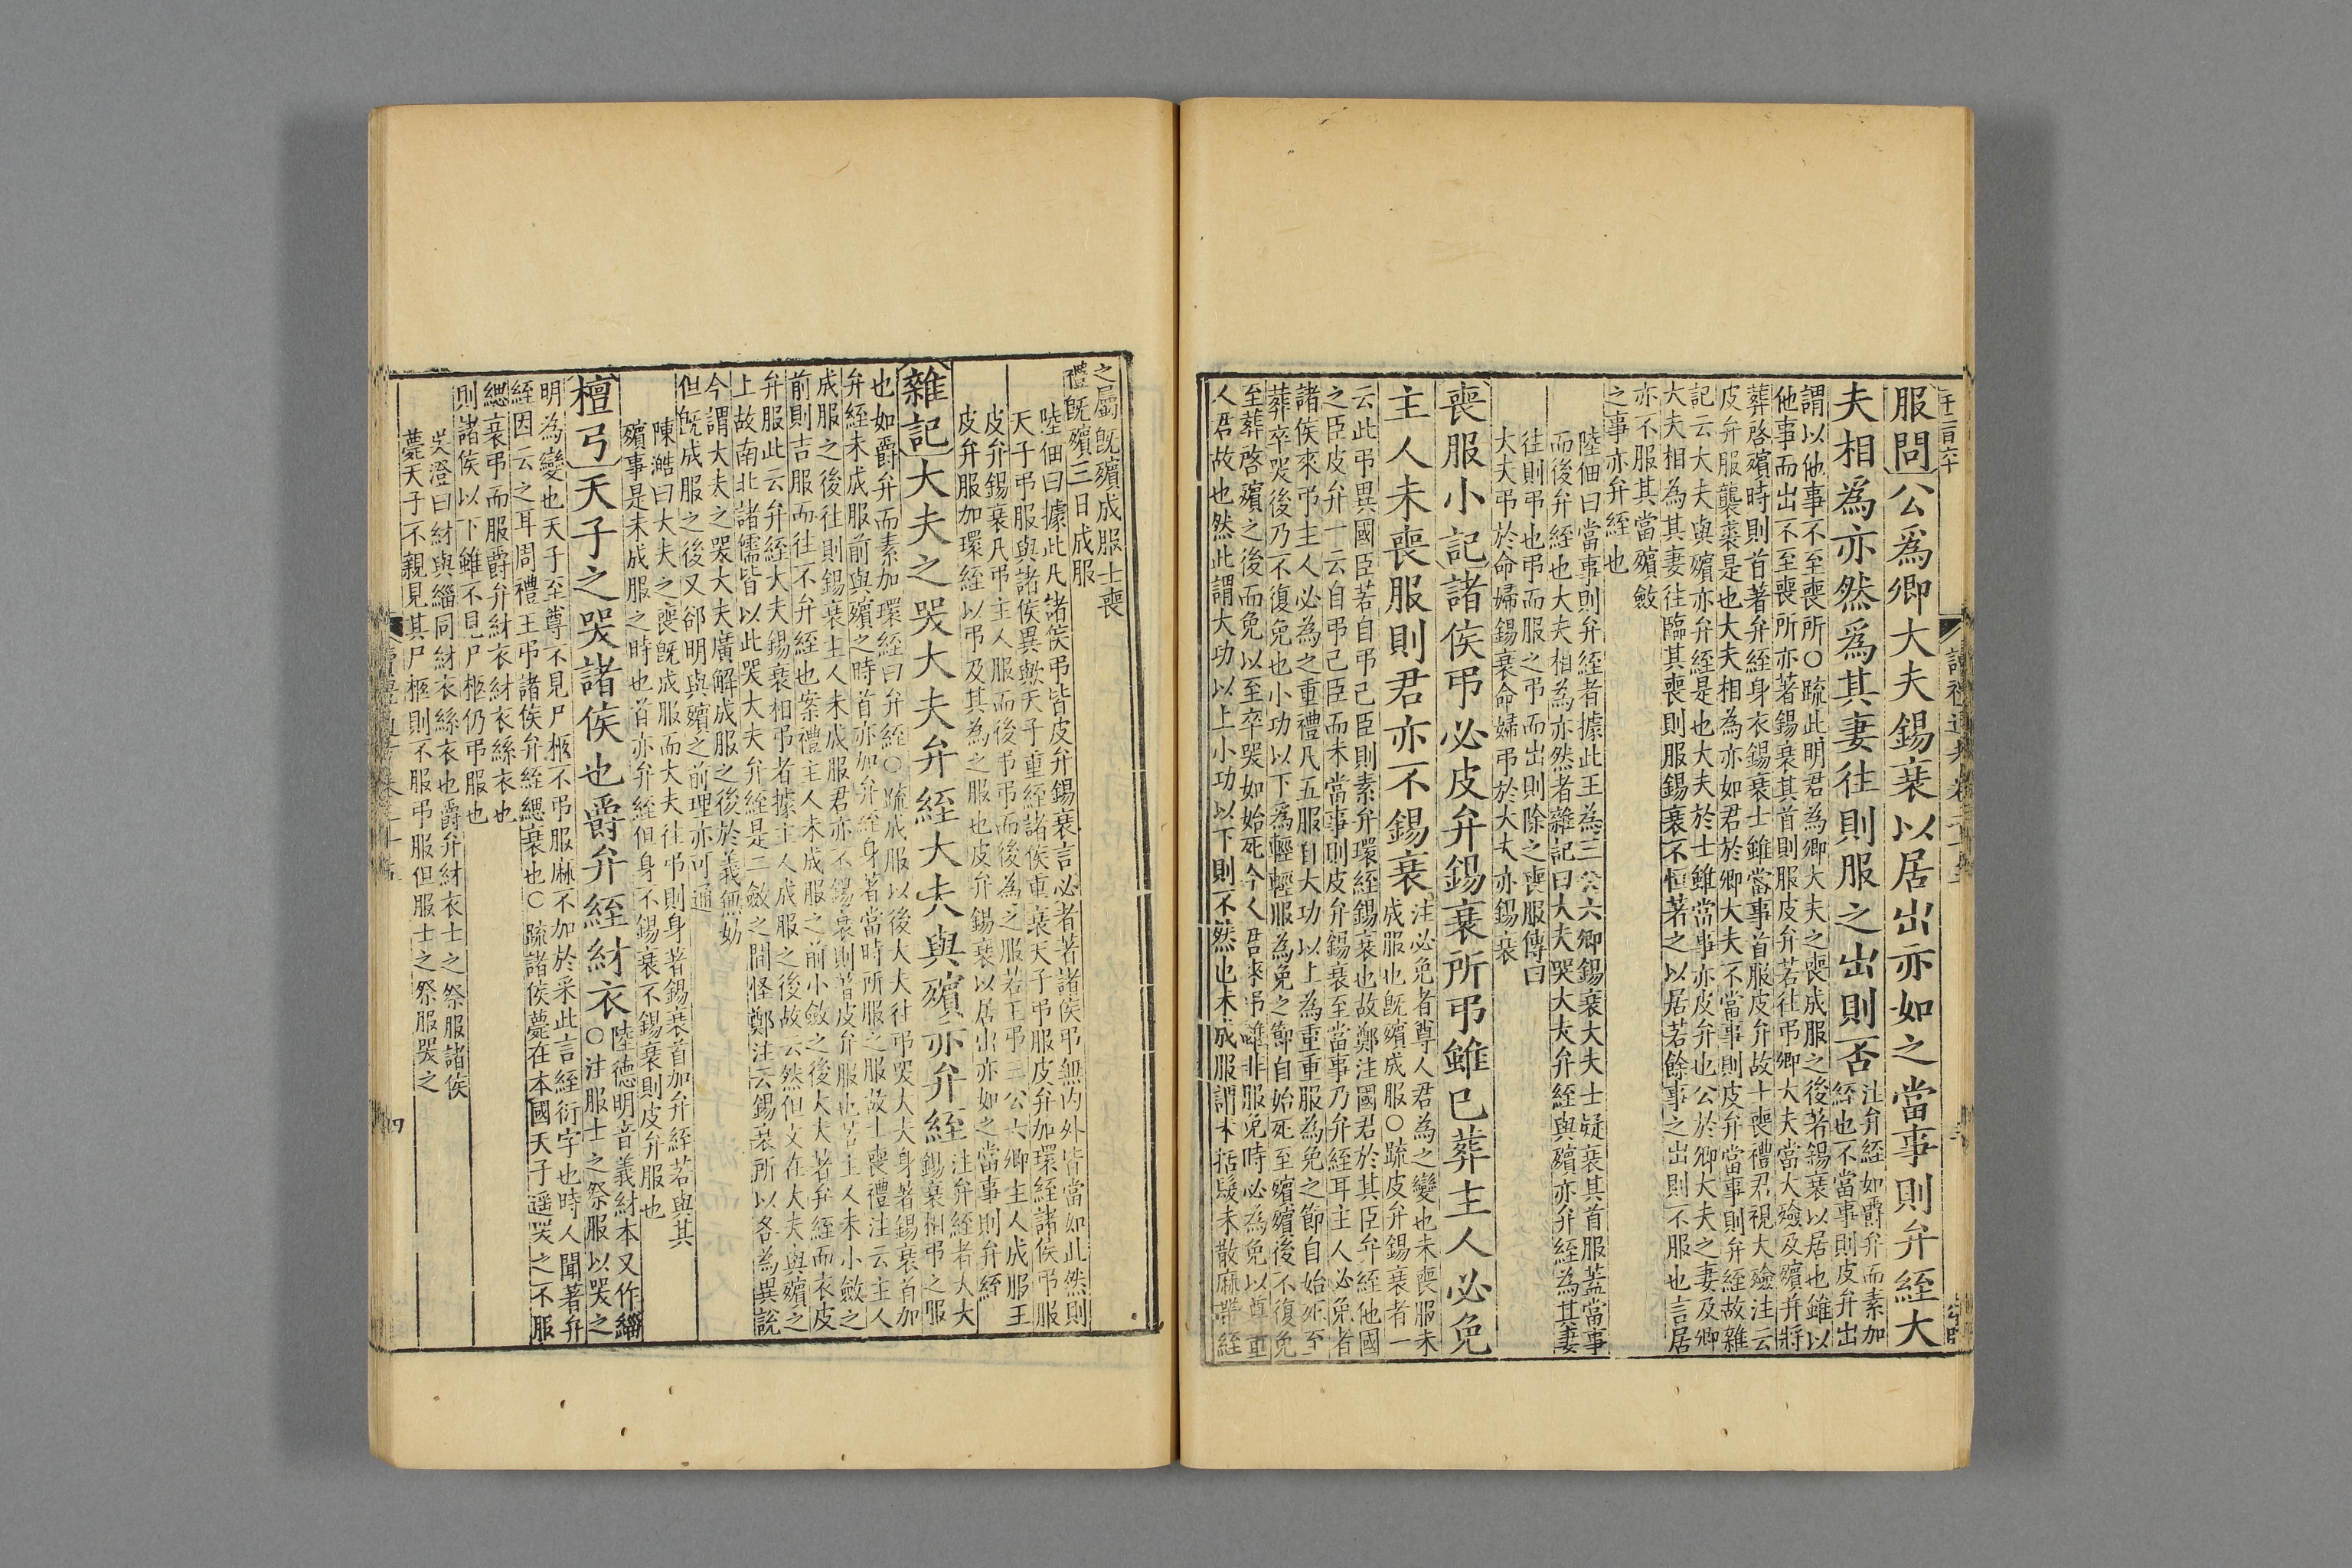 服問公爲卿大夫錫衰以居出亦如之當事則弁絰大
夫相爲亦然爲其妻往則服之出則否
注弁絰如爵弁而素加
絰也不當事則皮弁出
謂以他事不至喪所○疏此明君為卿大夫之喪成服之後著錫衰以居也雖以
他事而出不至喪所亦著錫衰其首則服皮弁若往弔卿大夫當大殮及殯并將
葬啓殯時則首著弁絰身衣錫衰士雖當事首服皮弁故士喪禮君視大殮注云
皮弁服襲裘是也大夫相為亦如君於卿大夫不當事則皮弁當事則弁絰故雜
記云大夫與殯亦弁絰是也大夫於士雖當事亦皮弁也公於卿大夫之妻及卿
大夫相為其妻往臨其喪則服錫衰不恒著之以居若餘事之出則不服也言居
亦不服其當殯斂
之事亦弁絰也
陸佃曰當事則弁絰者據此王為三公六卿錫衰大夫士疑衰其首服蓋當事
而後弁絰也大夫相為亦然者雜記曰大夫哭大夫弁絰與殯亦弁絰為其妻
往則弔也弔而服之弔而出則除之喪服傳曰
大夫弔於命婦錫衰命婦弔於大夫亦錫衰
喪服小記諸侯弔必皮弁錫衰所弔雖已葬主人必免
主人未喪服則君亦不錫衰
注必免者尊人君為之變也未喪服未
成服也既殯成服○疏皮弁錫衰者一
云此弔異國臣若自弔己臣則素弁環絰錫衰也故鄭注國君於其臣弁絰他國
之臣皮弁一云自弔己臣而未當事則皮弁錫衰至當事乃弁絰耳主人必免者
諸侯來弔主人必為之重禮凡五服自大功以上為重重服為免之節自始死至
葬卒哭後乃不復免也小功以下為輕輕服為免之節自始死至殯殯後不復免
至葬啓殯之後而免以至卒哭如始死今人君來弔雖非服免時必為免以尊重
人君故也然此謂大功以上小功以下則不然也未成服謂未括髮未散麻帶絰
之屬既殯成服士喪
禮既殯三日成服
陸佃曰據此凡諸侯弔皆皮弁錫衰言必者著諸侯弔無内外皆當如此然則
天子弔服與諸侯異歟天子重絰諸侯重衰天子弔服皮弁加環絰諸侯弔服
皮弁錫衰凡弔主人服而後弔弔而後為之服若王弔三公六卿主人成服王
皮弁服加環絰以弔及其為之服也皮弁錫衰以居出亦如之當事則弁絰
雜記大夫之哭大夫弁絰大夫與殯亦弁絰
注弁絰者大夫
錫衰相弔之服
也如爵弁而素加環絰曰弁絰○疏成服以後大夫往弔哭大夫身著錫衰首加
弁絰未成服前與殯之時首亦加弁絰身著當時所服之服故士喪禮注云主人
成服之後往則錫衰主人未成服君亦不錫衰則著皮弁服也若主人未小斂之
前則吉服而往不弁絰也案禮主人未成服之前小斂之後大夫著弁絰而衣皮
弁服此云弁絰大夫錫衰相弔者據主人成服之後故云然但文在大夫與殯之
上故南北諸儒皆以此哭大夫弁絰是二斂之間怪鄭注云錫衰所以各為異說
今謂大夫之哭大夫廣解成服之後於義無妨
但既成服之後又郤明與殯之前理亦可通
陳澔曰大夫之喪既成服而大夫往弔則身著錫衰首加弁絰若與其
殯事是未成服之時也首亦弁絰但身不錫衰不錫衰則皮弁服也
檀弓天子之哭諸侯也爵弁絰紂衣
陸德明音義紂本又作緇
○注服士之祭服以哭之
明為變也天子至尊不見尸柩不弔服麻不加於采此言絰衍字也時人聞著弁
絰因云之耳周禮王弔諸侯弁絰緦衰也○疏諸侯薨在本國天子遥哭之不服
緦衰弔而服爵弁紂衣紂衣絲衣也
則諸侯以下雖不見尸柩仍弔服也
吳澄曰紂與緇同紂衣絲衣也爵弁紂衣士之祭服諸侯
薨天子不親見其尸柩則不服弔服但服士之祭服哭之
四